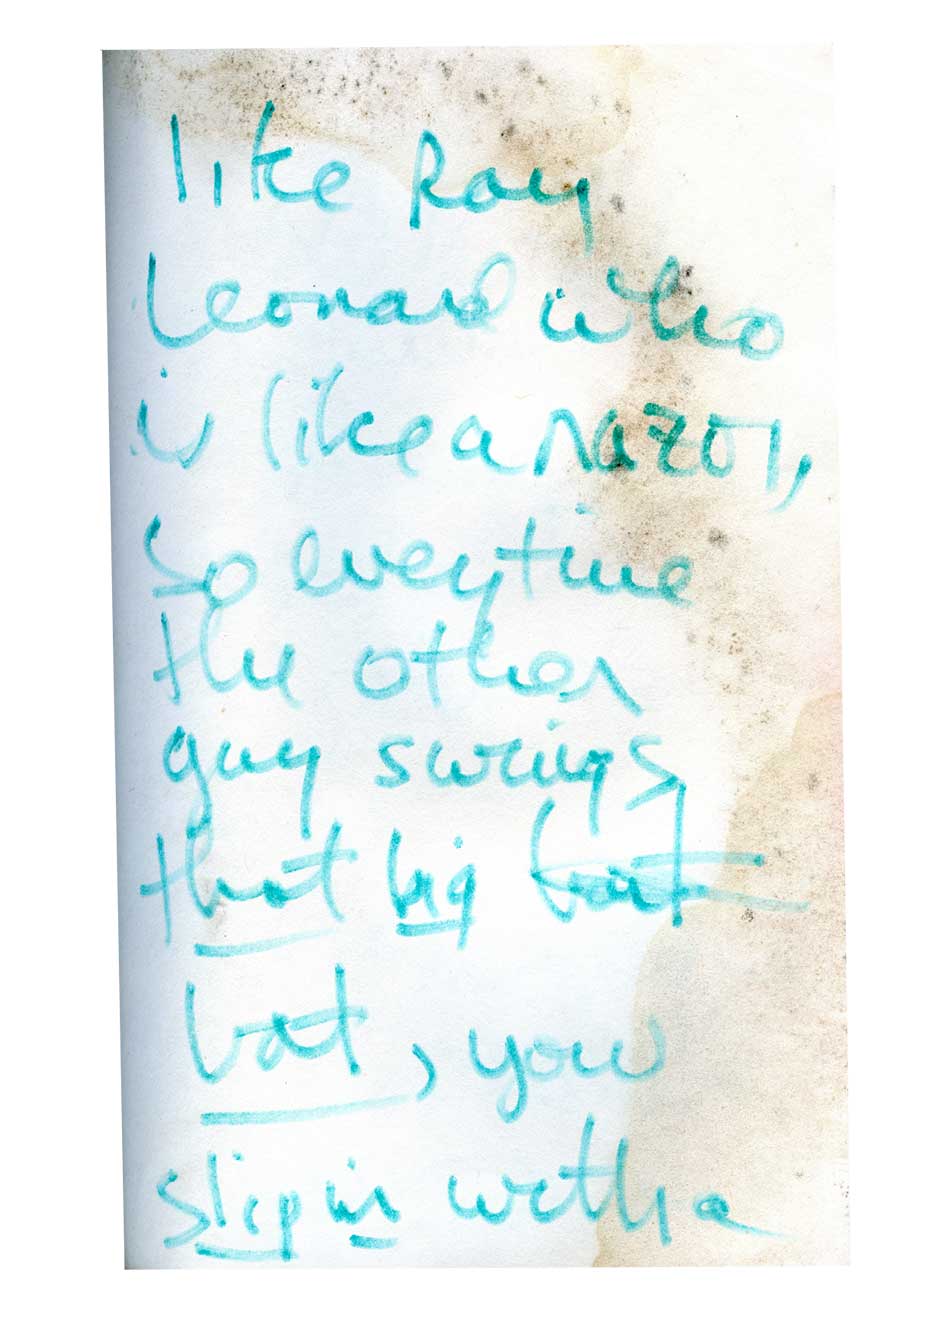 like Ray
Leonard who
is like a RAZOR,
so everytime
the other
guy swings
that big bat
bat, you
slip in with a